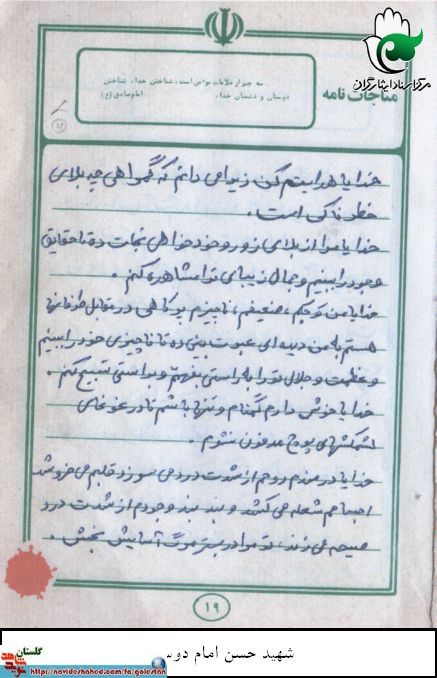 مرکز اسناد ایثارگران
مناجات نامه
سه چیز از علامات مؤمن است، شناختن خدا، شناختن
دوستان و دشمنان خدا، امام صادق (ع)
خدایا هدایتم کن زیرا می دانم که گمراهی چه بلای
خطرناکی است.
خدایا مرا از بلای غرور و خودخواهی نجات ده تا حقایق
وجود را ببینم و جمال زیبای تو را مشاهده کنم.
خدایا من کوچکم، ضعیفم، ناچیزم پر کاهی در مقابل طوفانها
هستم به من دیده ای عبرت بین ده تا ناچیزی خود را ببینم
و عظمت و جلال تو را براستی بفهمم و براستی تسبیح کنم.
خدایا خوش دارم گمنام و تنها باشم تا در غوغای
کشمکشهای پوچ مدفون نشوم.
خدایا دردمندم روحم از شدت درد می سوزد قلبم می خروشد
احساسم شعله می کشد و بند بند وجودم از شدت درد
صیحه می زند، تو مرا در بستر مرگ آسایش بخش.
۱۹
شهید حسن امام دوست
گلستان
https://navideshahed.com/fa/golestan